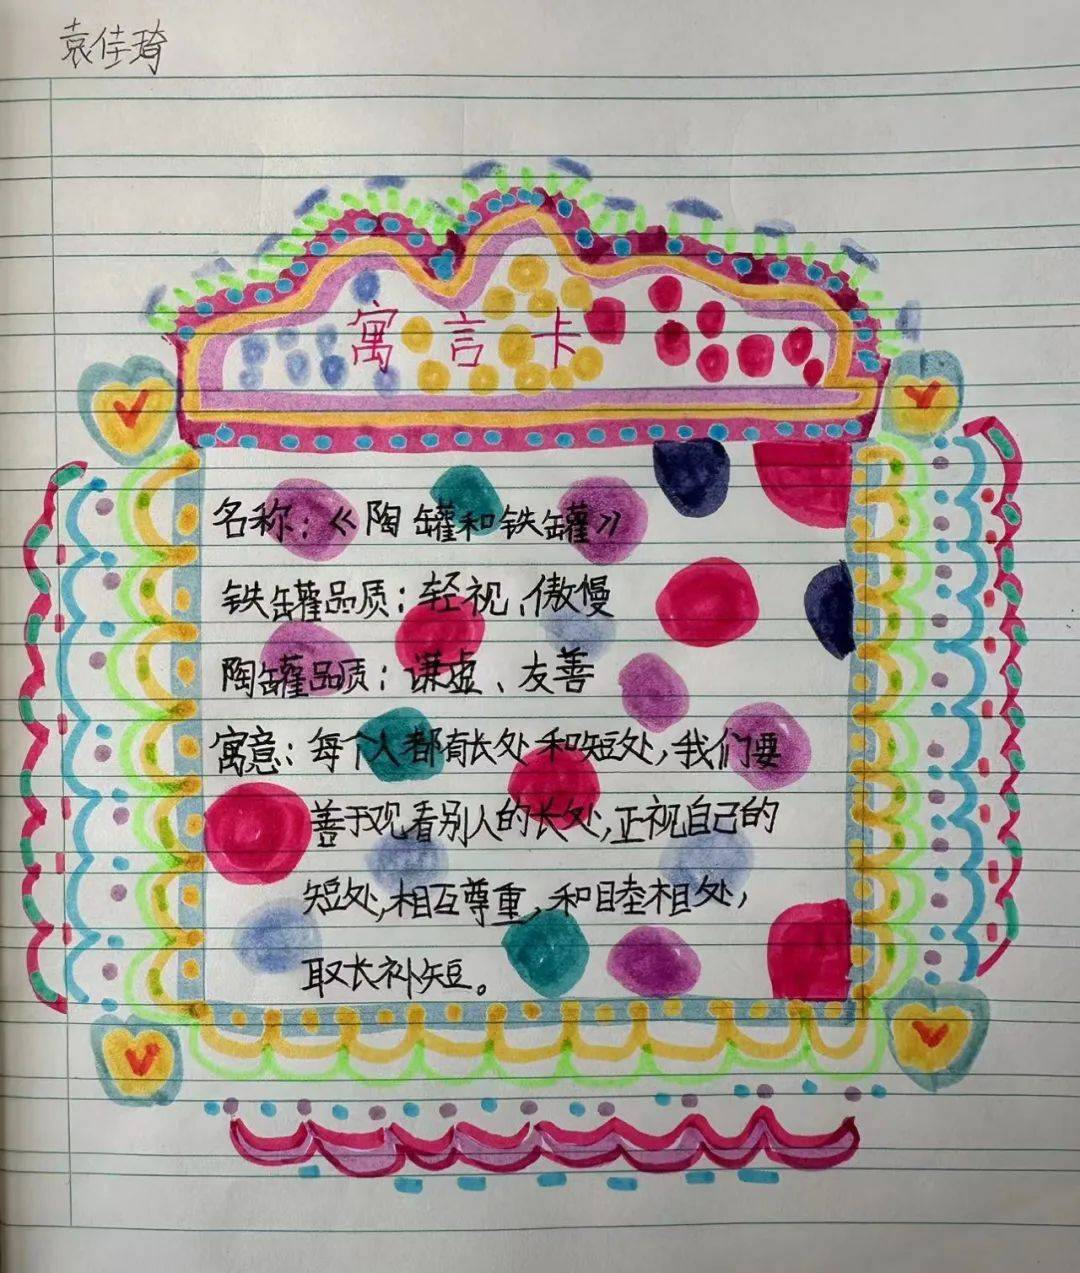 袁佳琦
寓言卡
名称:《陶罐和铁罐》
铁罐品质:轻视、傲慢
陶罐品质:谦虚、友善
寓意:每个人都有长处和短处,我们要
善于观看别人的长处,正视自己的
短处,相互尊重,和睦相处,
取长补短。